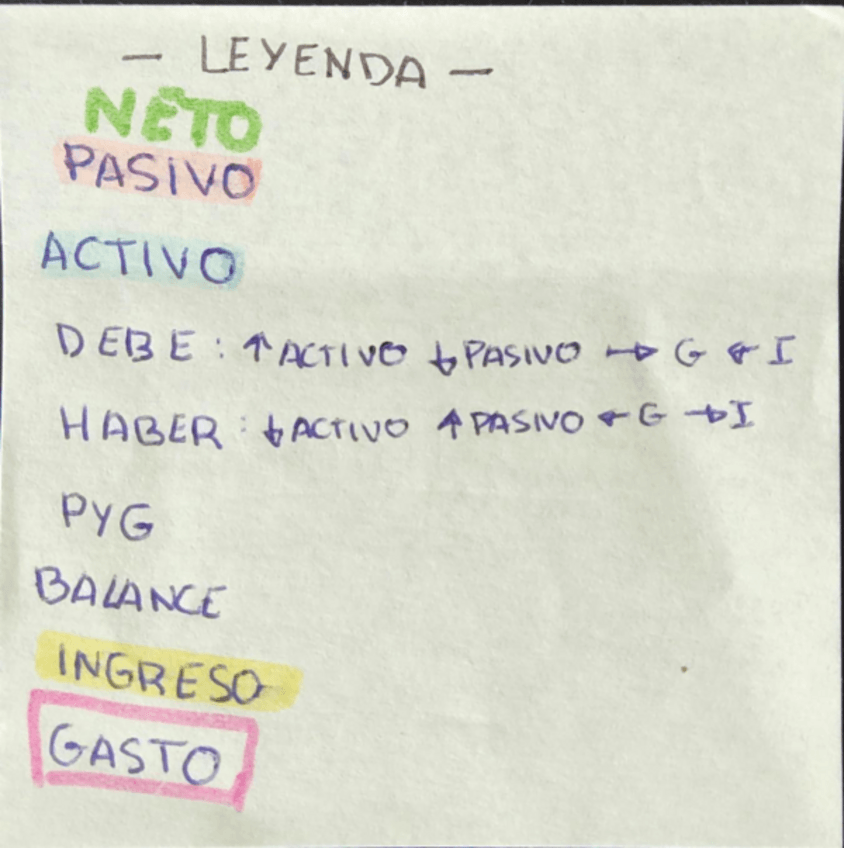 — LEYENDA —
NETO
PASIVO
ACTIVO
DEBE: ↑ ACTIVO ↓ PASIVO → G ← I
HABER: ↓ ACTIVO ↑ PASIVO ← G → I
PYG
BALANCE
INGRESO
GASTO